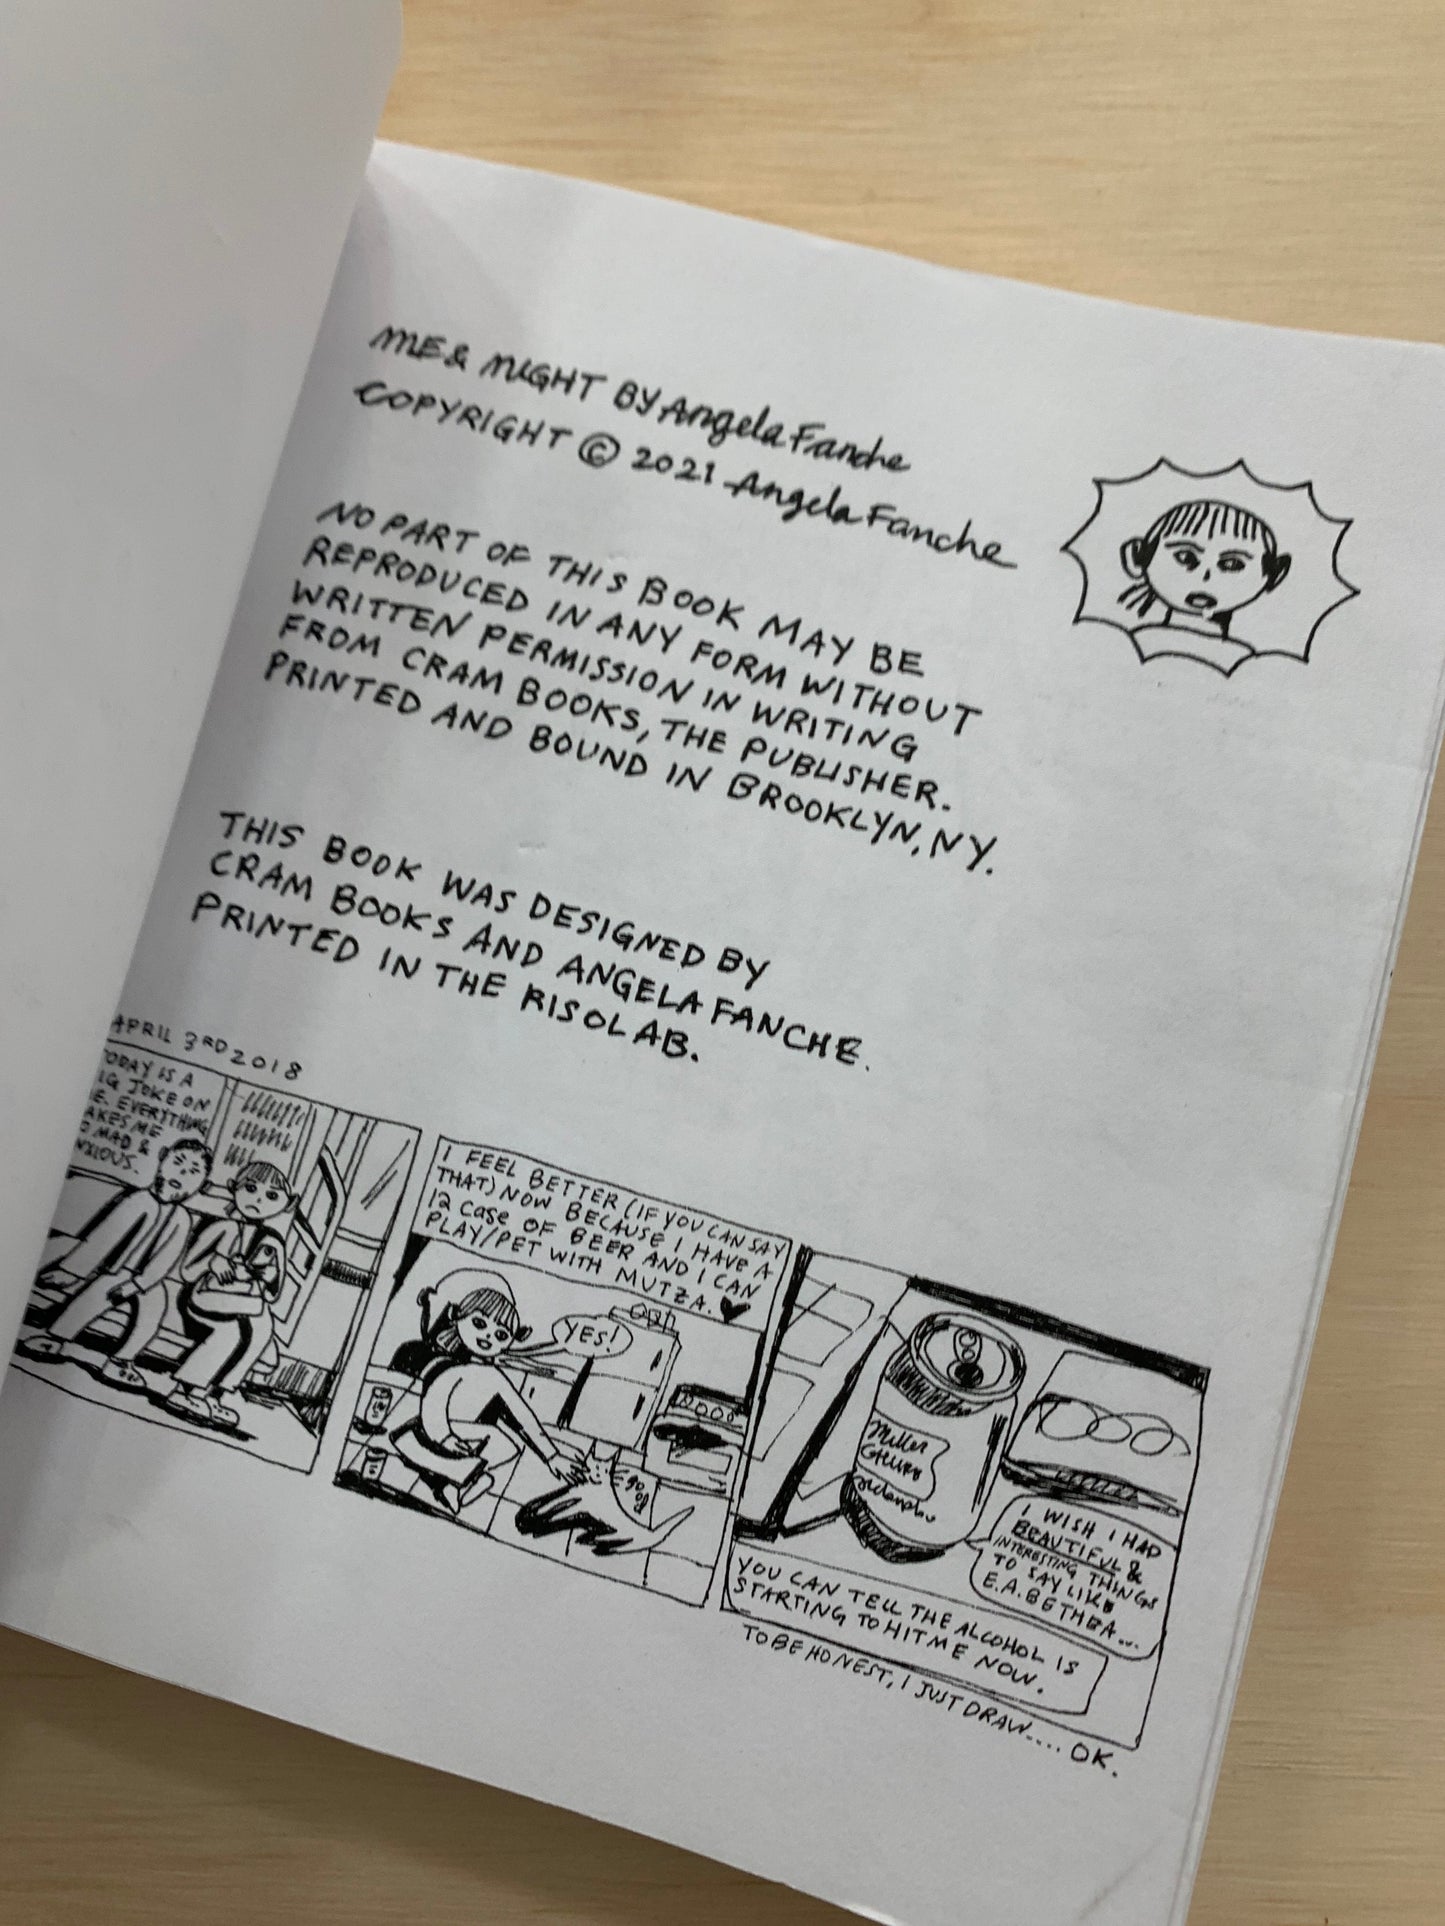 ME & NIGHT BY Angela Fanche
COPYRIGHT © 2021 Angela Fanche
NO PART OF THIS BOOK MAY BE
REPRODUCED IN ANY FORM WITHOUT
WRITTEN PERMISSION IN WRITING
FROM CRAM BOOKS, THE PUBLISHER.
PRINTED AND BOUND IN BROOKLYN, NY.
THIS BOOK WAS DESIGNED BY
CRAM BOOKS AND ANGELA FANCHE.
PRINTED IN THE RISOLAB.
APRIL 3RD 2018
TODAY IS A
JOKE ON
EVERYTHING
ME
MAD &
I FEEL BETTER (IF YOU CAN SAY
THAT) NOW BECAUSE I HAVE A
12 CASE OF BEER AND I CAN
PLAY/PET WITH MUTZA. ♥
YES!
good
Miller
I WISH I HAD
BEAUTIFUL &
INTERESTING THINGS
TO SAY LIKE
E.A. BETHEA...
YOU CAN TELL THE ALCOHOL IS
STARTING TO HIT ME NOW.
TO BE HONEST, I JUST DRAW.... OK.